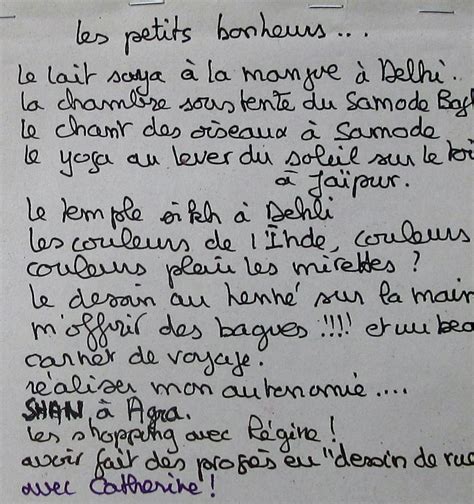 les petits bonheurs...
Le lait soya à la mangue à Delhi.
La chambre sous tente du Samode Bag
le chant des oiseaux à Samode
le yoga au lever du soleil sur le toi
à Jaïpur.
Le temple sikh à Dehli
les couleurs de l'Inde, couleurs
couleurs plein les mirettes ?
le dessin au henné sur la main
m'offrir des bagues !!!! et un bea
carnet de voyage.
réaliser mon autonomie....
SHAN à Agra.
les shopping avec Régine !
avoir fait des progès en "dessin de rue
avec Catherine !